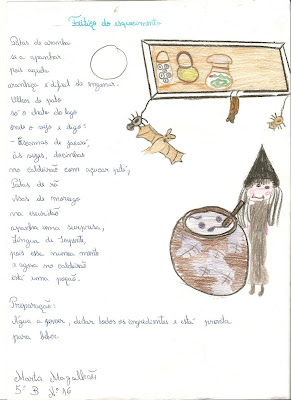 Feitiço do esquecimento
Patas de aranha
se a apanhar
pois aquela
aranhiça é difícil de enganar.
Olhos de gato
só o chato do logo
onde o vejo e digo:
- Escamas de jacaré,
às vezes, docinhas
no caldeirão com açúcar pilé,
Patas de rã
Asas de morcego
na escuridão
apanha uma surpresa,
Língua de serpente,
pois esse nunca mente
e agora no caldeirão
está uma poção.
Preparação:
Água a ferver, deitar todos os ingredientes e está pronta
para beber.
Marta Magalhães
5º B Nº 16